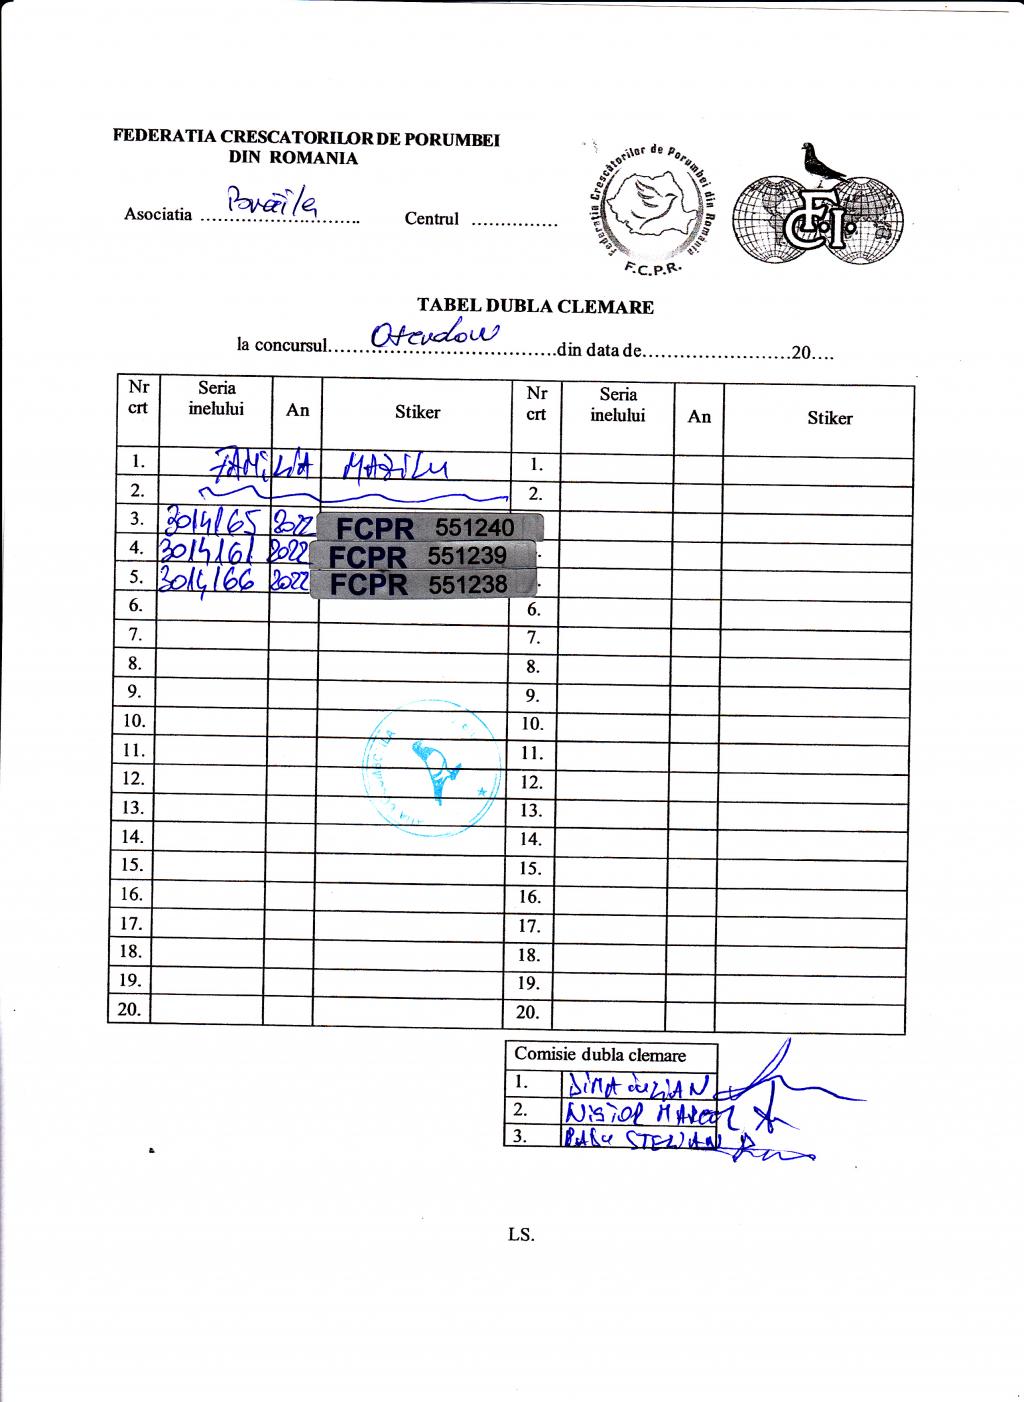 FEDERATIA CRESCATORILOR DE PORUMBEI
DIN ROMANIA
Asociatia Brăila Centrul ..............
Federația Crescătorilor de Porumbei din România
F.C.P.R.
F.C.I.
TABEL DUBLA CLEMARE
la concursul Ostendow din data de.........................20....
Nr crt Seria inelului An Stiker Nr crt Seria inelului An Stiker
1. FAMILIA MAZILU 1.
2. 2.
3. 3014165 2022 FCPR 551240
4. 3014161 2022 FCPR 551239
5. 3014166 2022 FCPR 551238
6. 6.
7. 7.
8. 8.
9. 9.
10. 10.
11. 11.
12. 12.
13. 13.
14. 14.
15. 15.
16. 16.
17. 17.
18. 18.
19. 19.
20. 20.
Comisie dubla clemare
1. DIMA IULIAN
2. NISTOR MARCEL
3. STELIAN
LS.